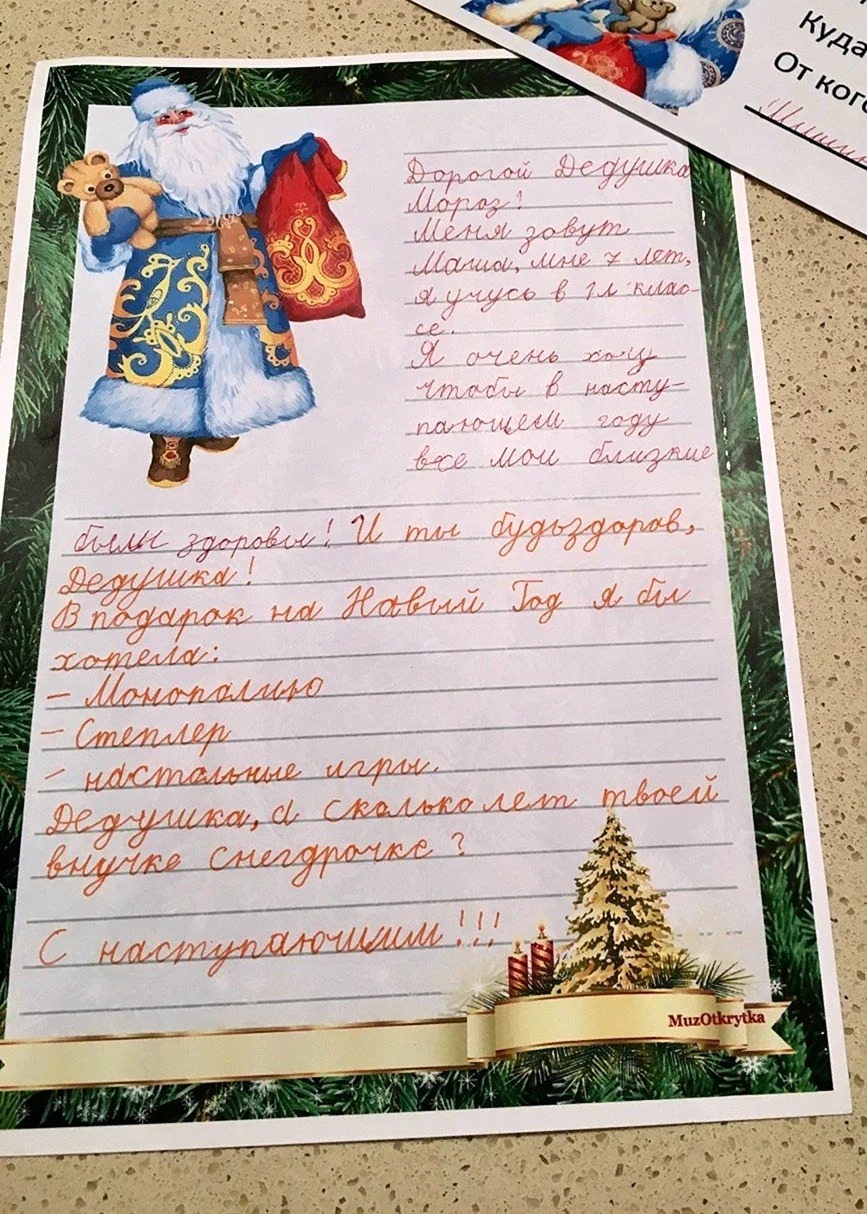 Куда
От кого
Дорогой Дедушка
Мороз!
Меня зовут
Маша, мне 7 лет,
я учусь в 1л клас-
се.
Я очень хочу
чтобы в насту-
пающем году
все мои близкие
были здоровы! И ты будьздоров,
Дедушка!
В подарок на Новый Год я бы
хотела:
- Монополию
- Степлер
- настольные игры.
Дедушка, а сколько лет твоей
внучке снегдрочке?
С наступающимм!!!
MuzOtkrytka